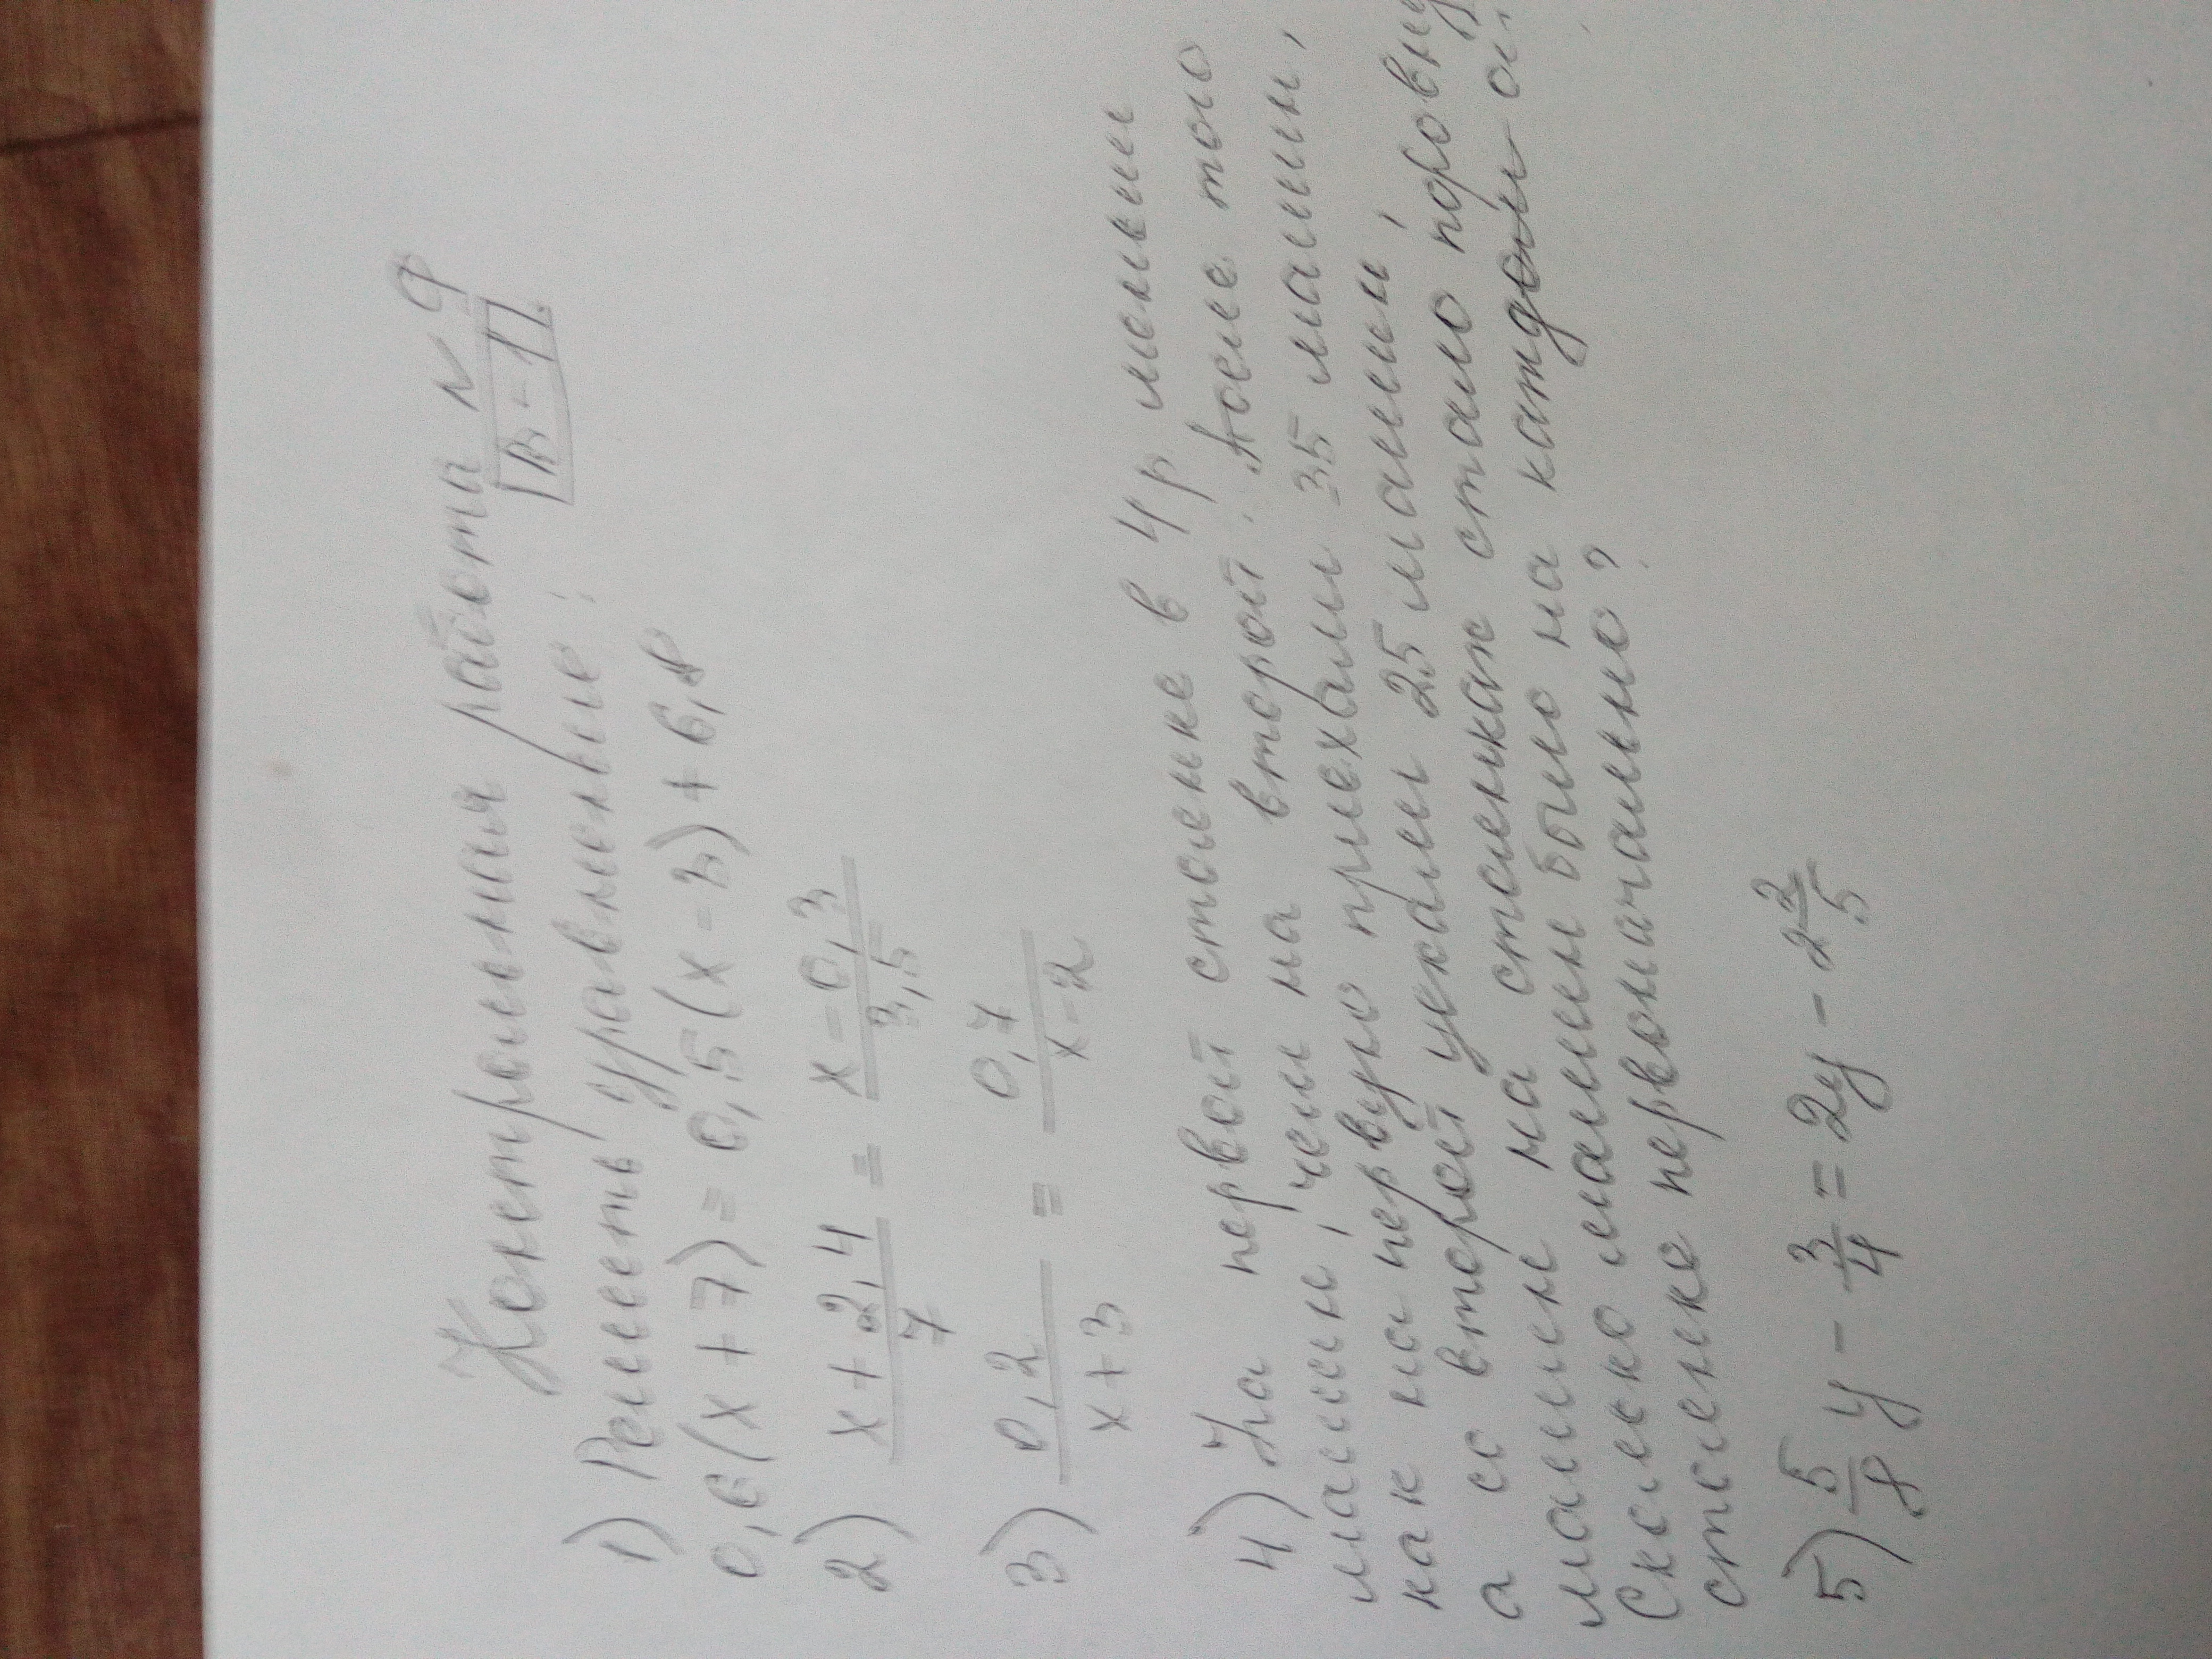 Контрольная работа N 9
В-1
1) Решить уравнение:
0,6(x+7)=0,5(x-3)+6,8
2) x+2,4/7 = x-0,3/3,5
3) 0,2/x+3 = 0,7/x-2
4) На первой стоянке в 4р меньше
машин, чем на второй. После того
как на первую приехали 35 машин,
а со второй уехали 25 машин,
машин на стоянках стало поровну
Сколько машин было на каждой
стоянке первоначально?
5) 5/8 y - 3/4 = 2y - 2 2/5